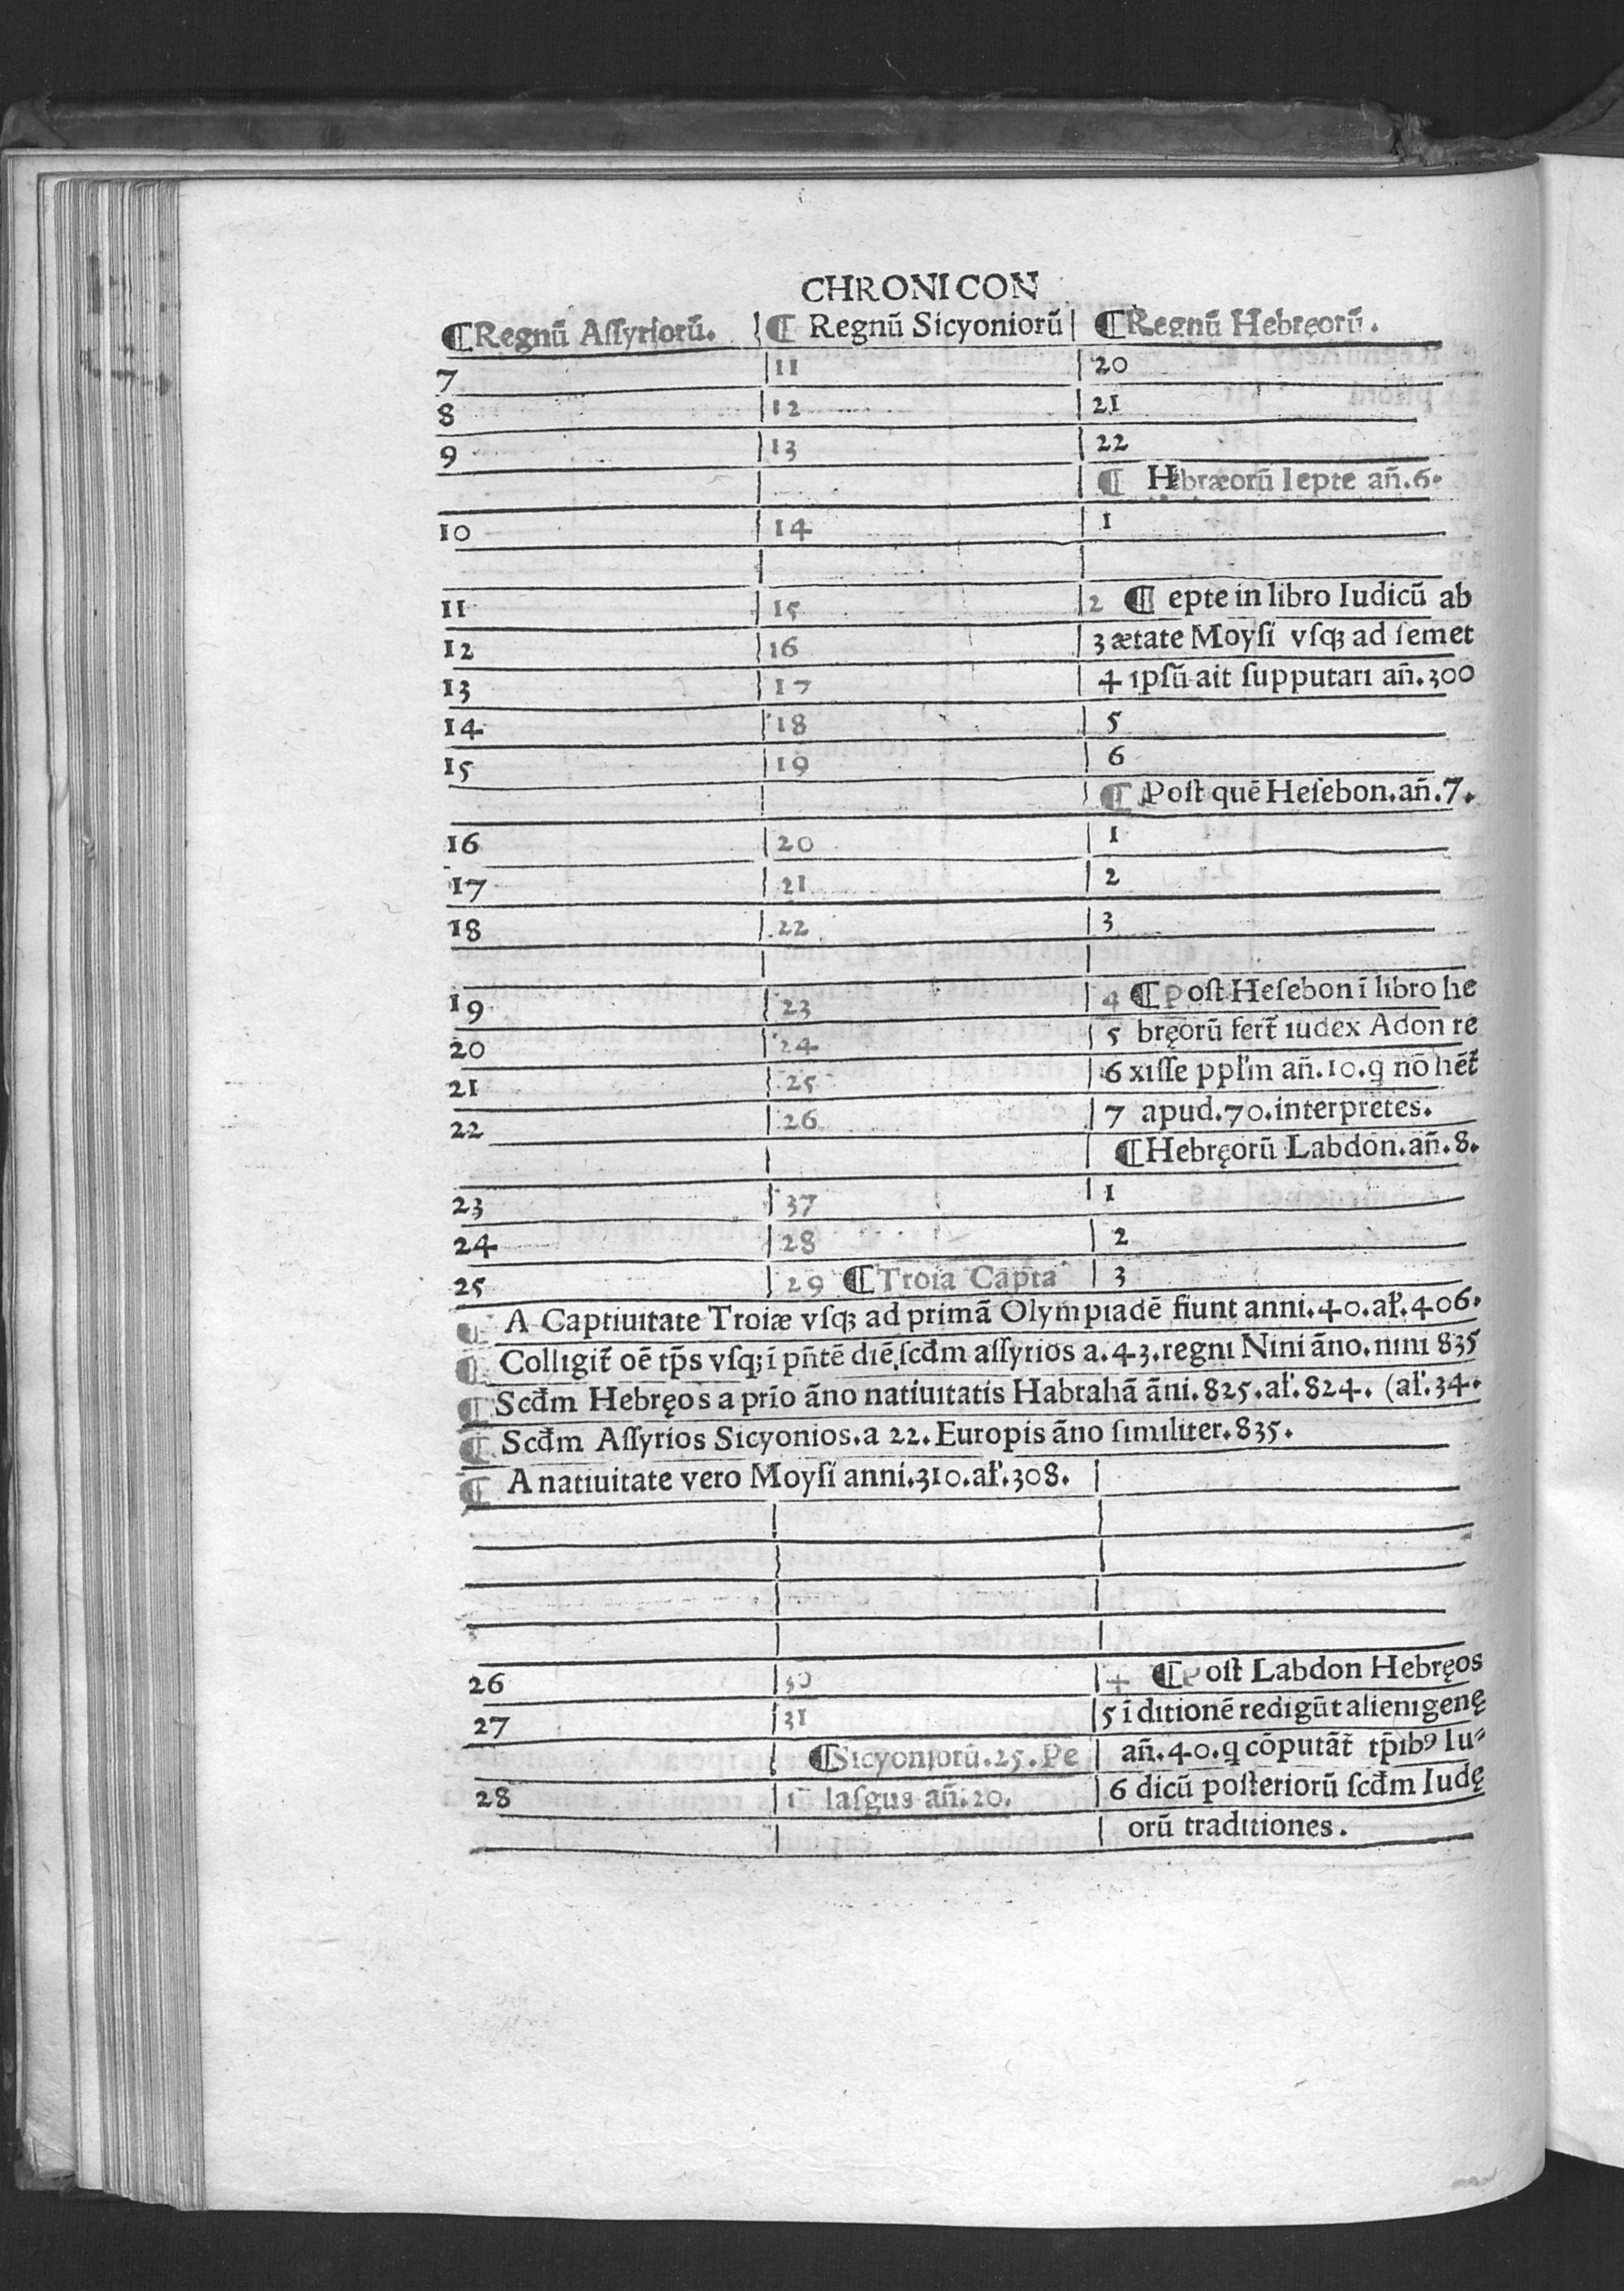 CHRONICON
¶Regnū Aſſyriorū. ¶ Regnū Sicyoniorū ¶Regnū Hebręorū.
7 11 20
8 12 21
9 13 22
¶ Hbræorū Iepte añ.6.
10 14 1
11 15 2 ¶ epte in libro Iudicū ab
12 16 3 ætate Moyſi vſqꝫ ad ſemet
13 17 4 ipſū ait ſupputari añ.300
14 18 5
15 19 6
¶ Poſt quē Heſebon.añ.7.
16 20 1
17 21 2
18 22 3
19 23 4 ¶Poſt Heſebon ī libro he
20 24 5 bręorū fert̄ iudex Adon re
21 25 6 xiſſe ppl'm añ.10.q nō hēt̄
22 26 7 apud.70.interpretes.
¶Hebręorū Labdon.añ.8.
23 37 1
24 28 2
25 29 ¶Troia Capta 3
¶ A Captiuitate Troiæ vſqꝫ ad primā Olympiadē fiunt anni.40.al'.406.
¶ Colligit̄ oē tp̄s vſqꝫ ī pn̄tē diē,ſcd̄m aſſyrios a.43.regni Nini āno.nini 835
¶ Scd̄m Hebręos a prīo āno natiuitatis Habrahā āni.825.al'.824. (al'.34.
¶ Scd̄m Aſſyrios Sicyonios.a 22.Europis āno ſimiliter.835.
¶ A natiuitate vero Moyſi anni.310.al'.308.
26 30 4 ¶Poſt Labdon Hebręos
27 31 5 ī ditionē redigūt alienigenę
¶Sicyoniorū.25.Pe añ.40.q cōputāt̄ tp̄ibꝰ Iu⸗
28 1 laſgus añ.20. 6 dicū poſteriorū ſcd̄m Iudę
orū traditiones.